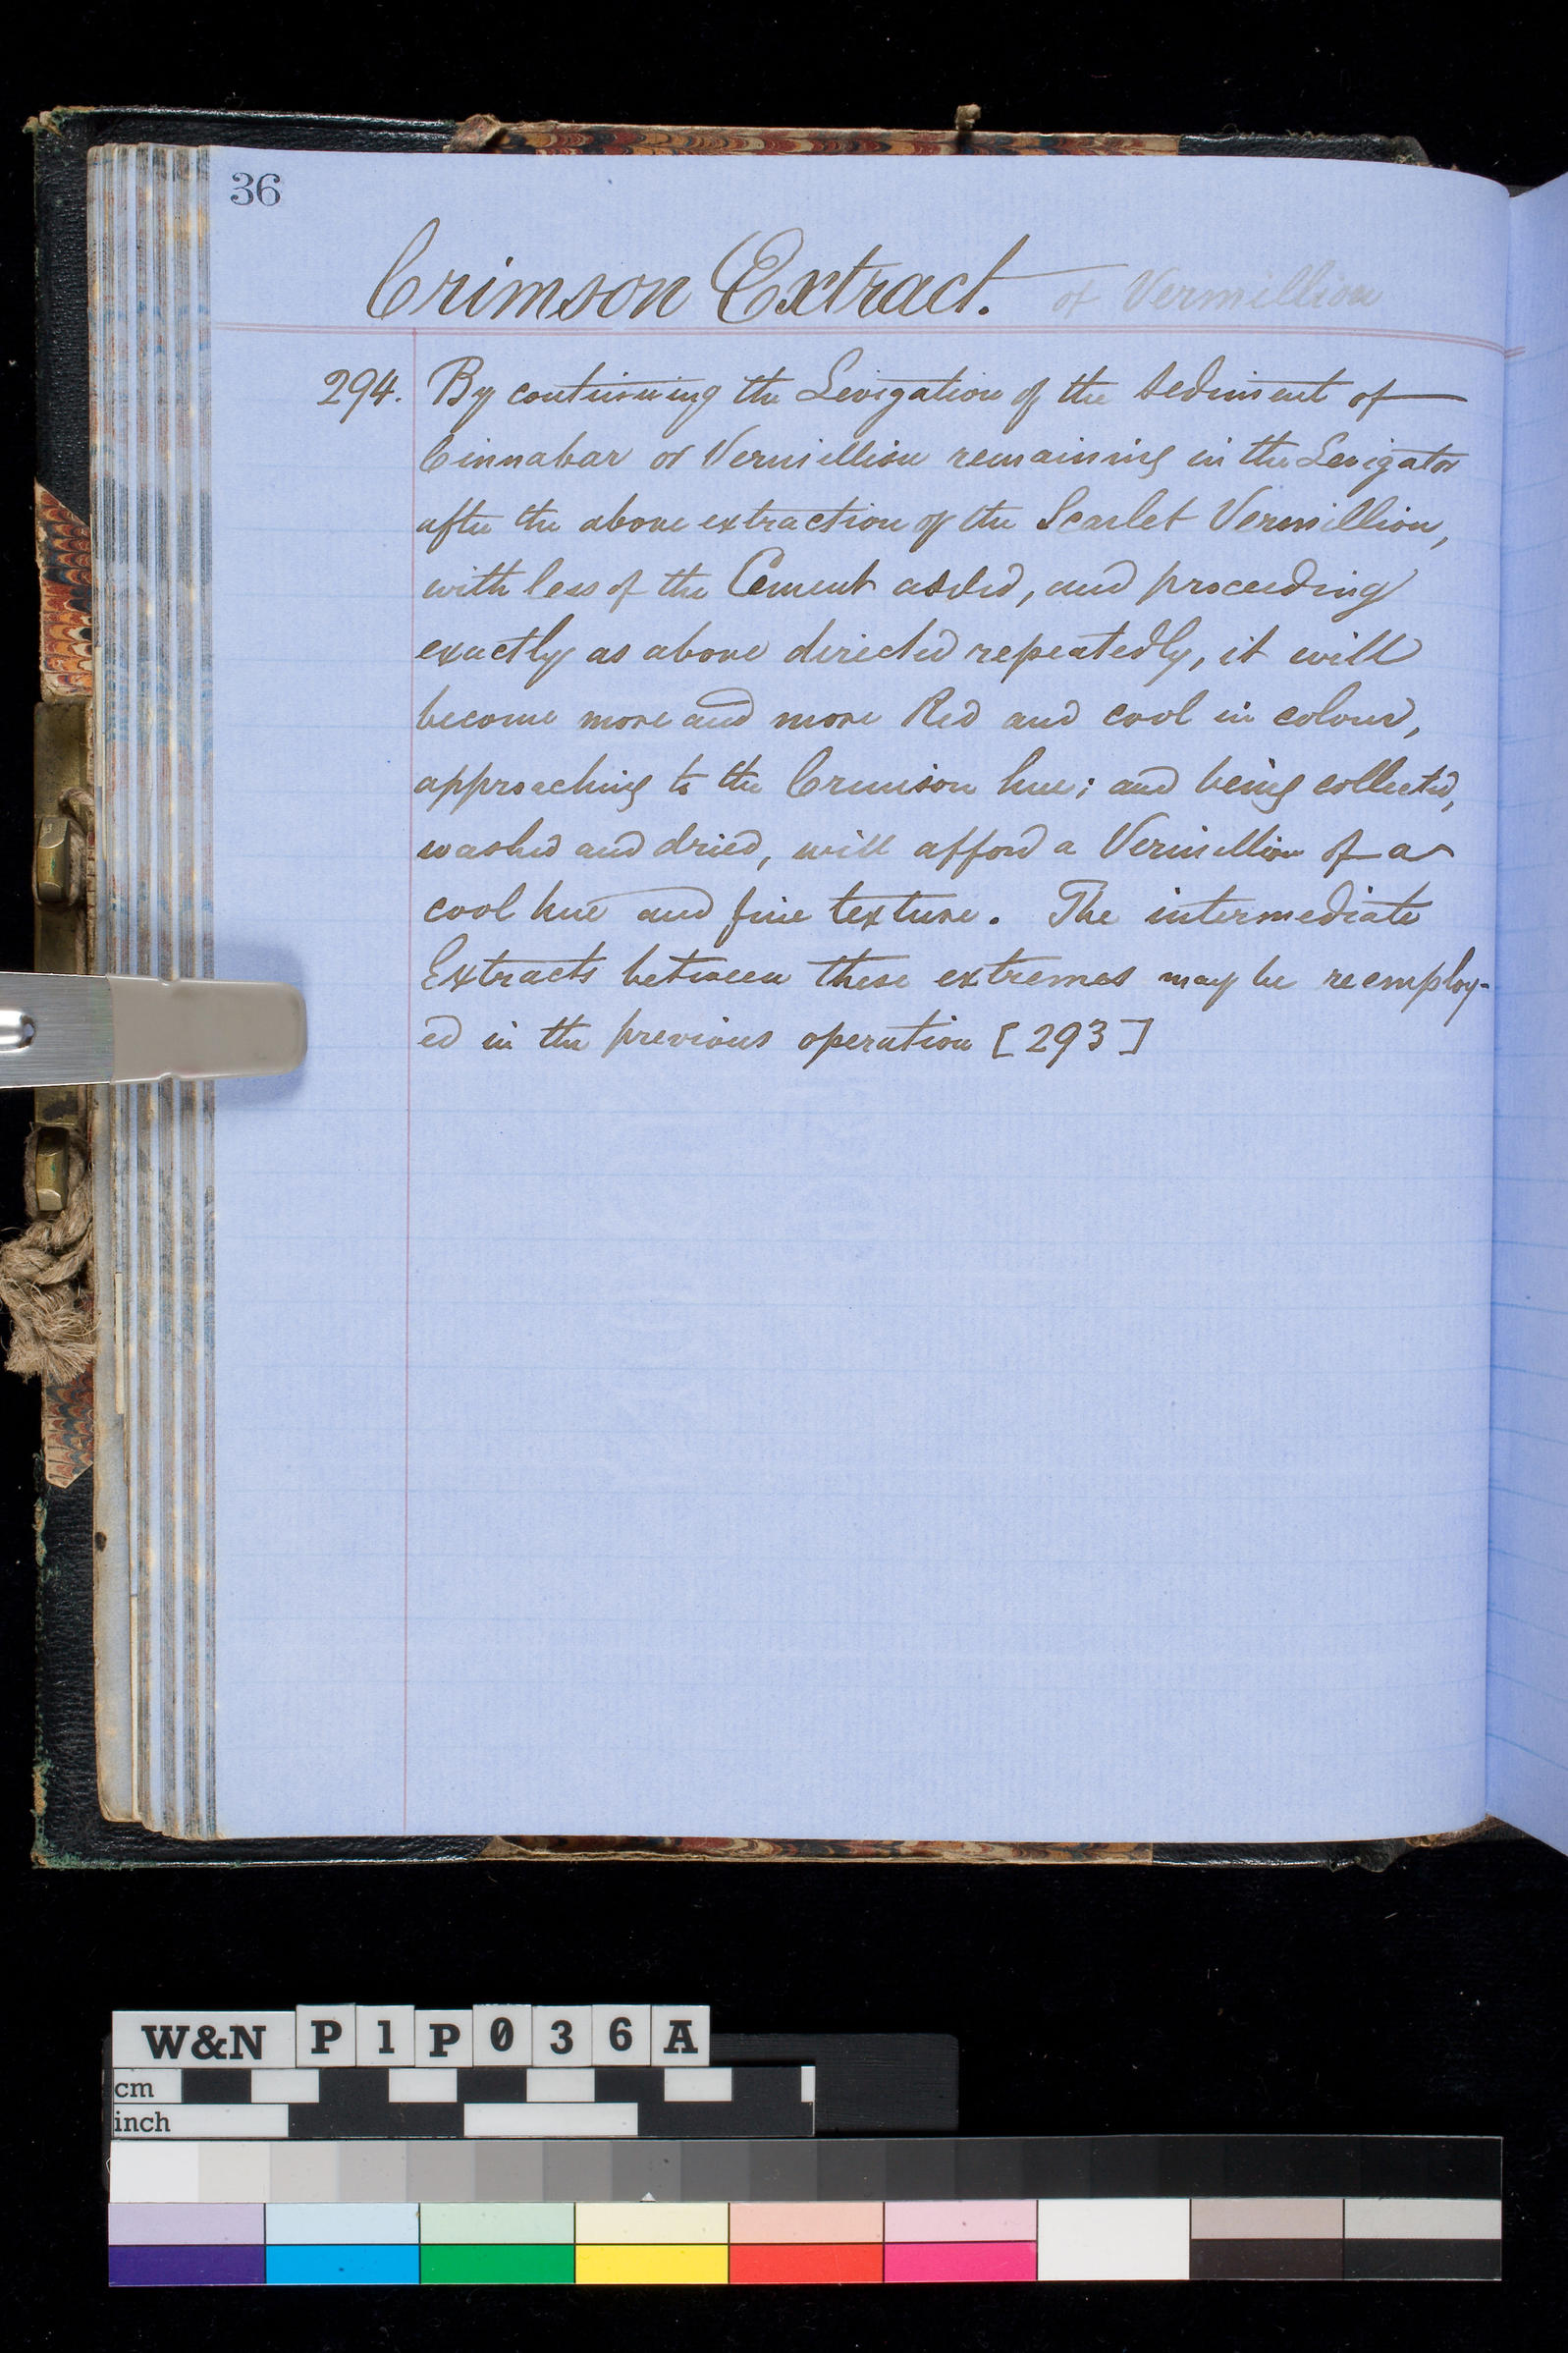 36
Crimson Extract. of Vermillion
294. By continuing the Levigation of the Sediment of
Cinnabar or Vermillion remaining in the Levigator
after the above extraction of the Scarlet Vermillion,
with less of the Cement added, and proceeding
exactly as above directed repeatedly, it will
become more and more Red and cool in colour,
approaching to the Crimson hue; and being collected,
washed and dried, will afford a Vermillion of a
cool hue and fine texture. The intermediate
Extracts between these extremes may be reemploy-
ed in the previous operation [293]
W&N P1P036A
cm
inch